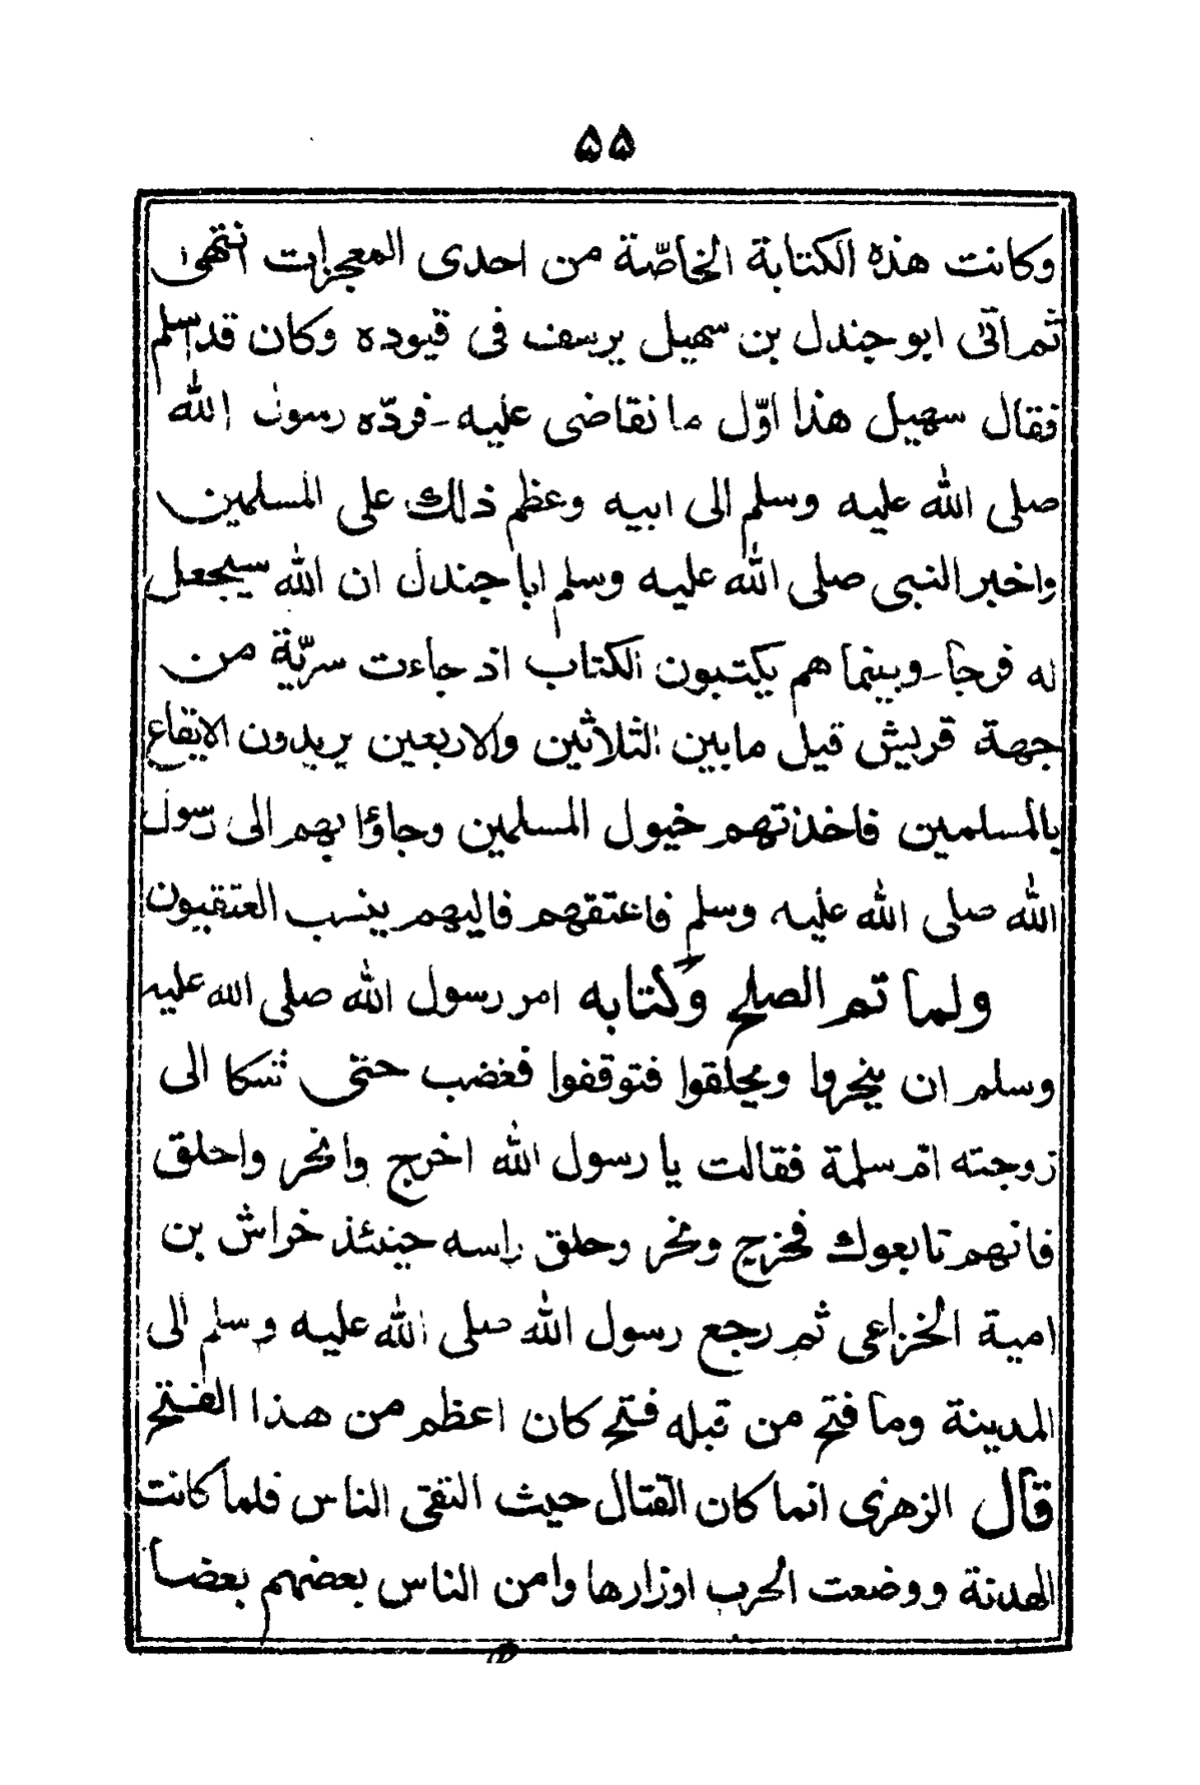 ۵۵
وكانت هذه الكتابة الخاصّة من احدى المعجزات انتهى
ثم اتى ابو جندل بن سهيل يرسف فى قيوده وكان قد اسلم
فقال سهيل هذا اوّل ما نقاضى عليه ـ فردّه رسول الله
صلى الله عليه وسلم الى ابيه وعظم ذلك على المسلمين
واخبر النبى صلى الله عليه وسلم ابا جندل ان الله سيجعل
له فرجا ـ وبينما هم يكتبون الكتاب اذ جاءت سريّة من
جهة قريش قيل ما بين الثلاثين والاربعين يريدون الايقاع
بالمسلمين فاخذتهم خيول المسلمين وجاؤا بهم الى رسول
الله صلى الله عليه وسلم فاعتقهم فاليهم ينسب العتقيون
ولما تم الصلح وكتابه امر رسول الله صلى الله عليه
وسلم ان ينحروا ويحلقوا فتوقفوا فغضب حتى شكا الى
زوجته امّ سلمة فقالت يا رسول الله اخرج وانحر واحلق
فانهم تابعوك فخرج ونحر وحلق راسه حينئذ خراش بن
امية الخزاعى ثم رجع رسول الله صلى الله عليه وسلم الى
المدينة وما فتح من قبله فتح كان اعظم من هذا الفتح
قال الزهرى انما كان القتال حيث التقى الناس فلما كانت
الهدنة ووضعت الحرب اوزارها وامن الناس بعضهم بعضا